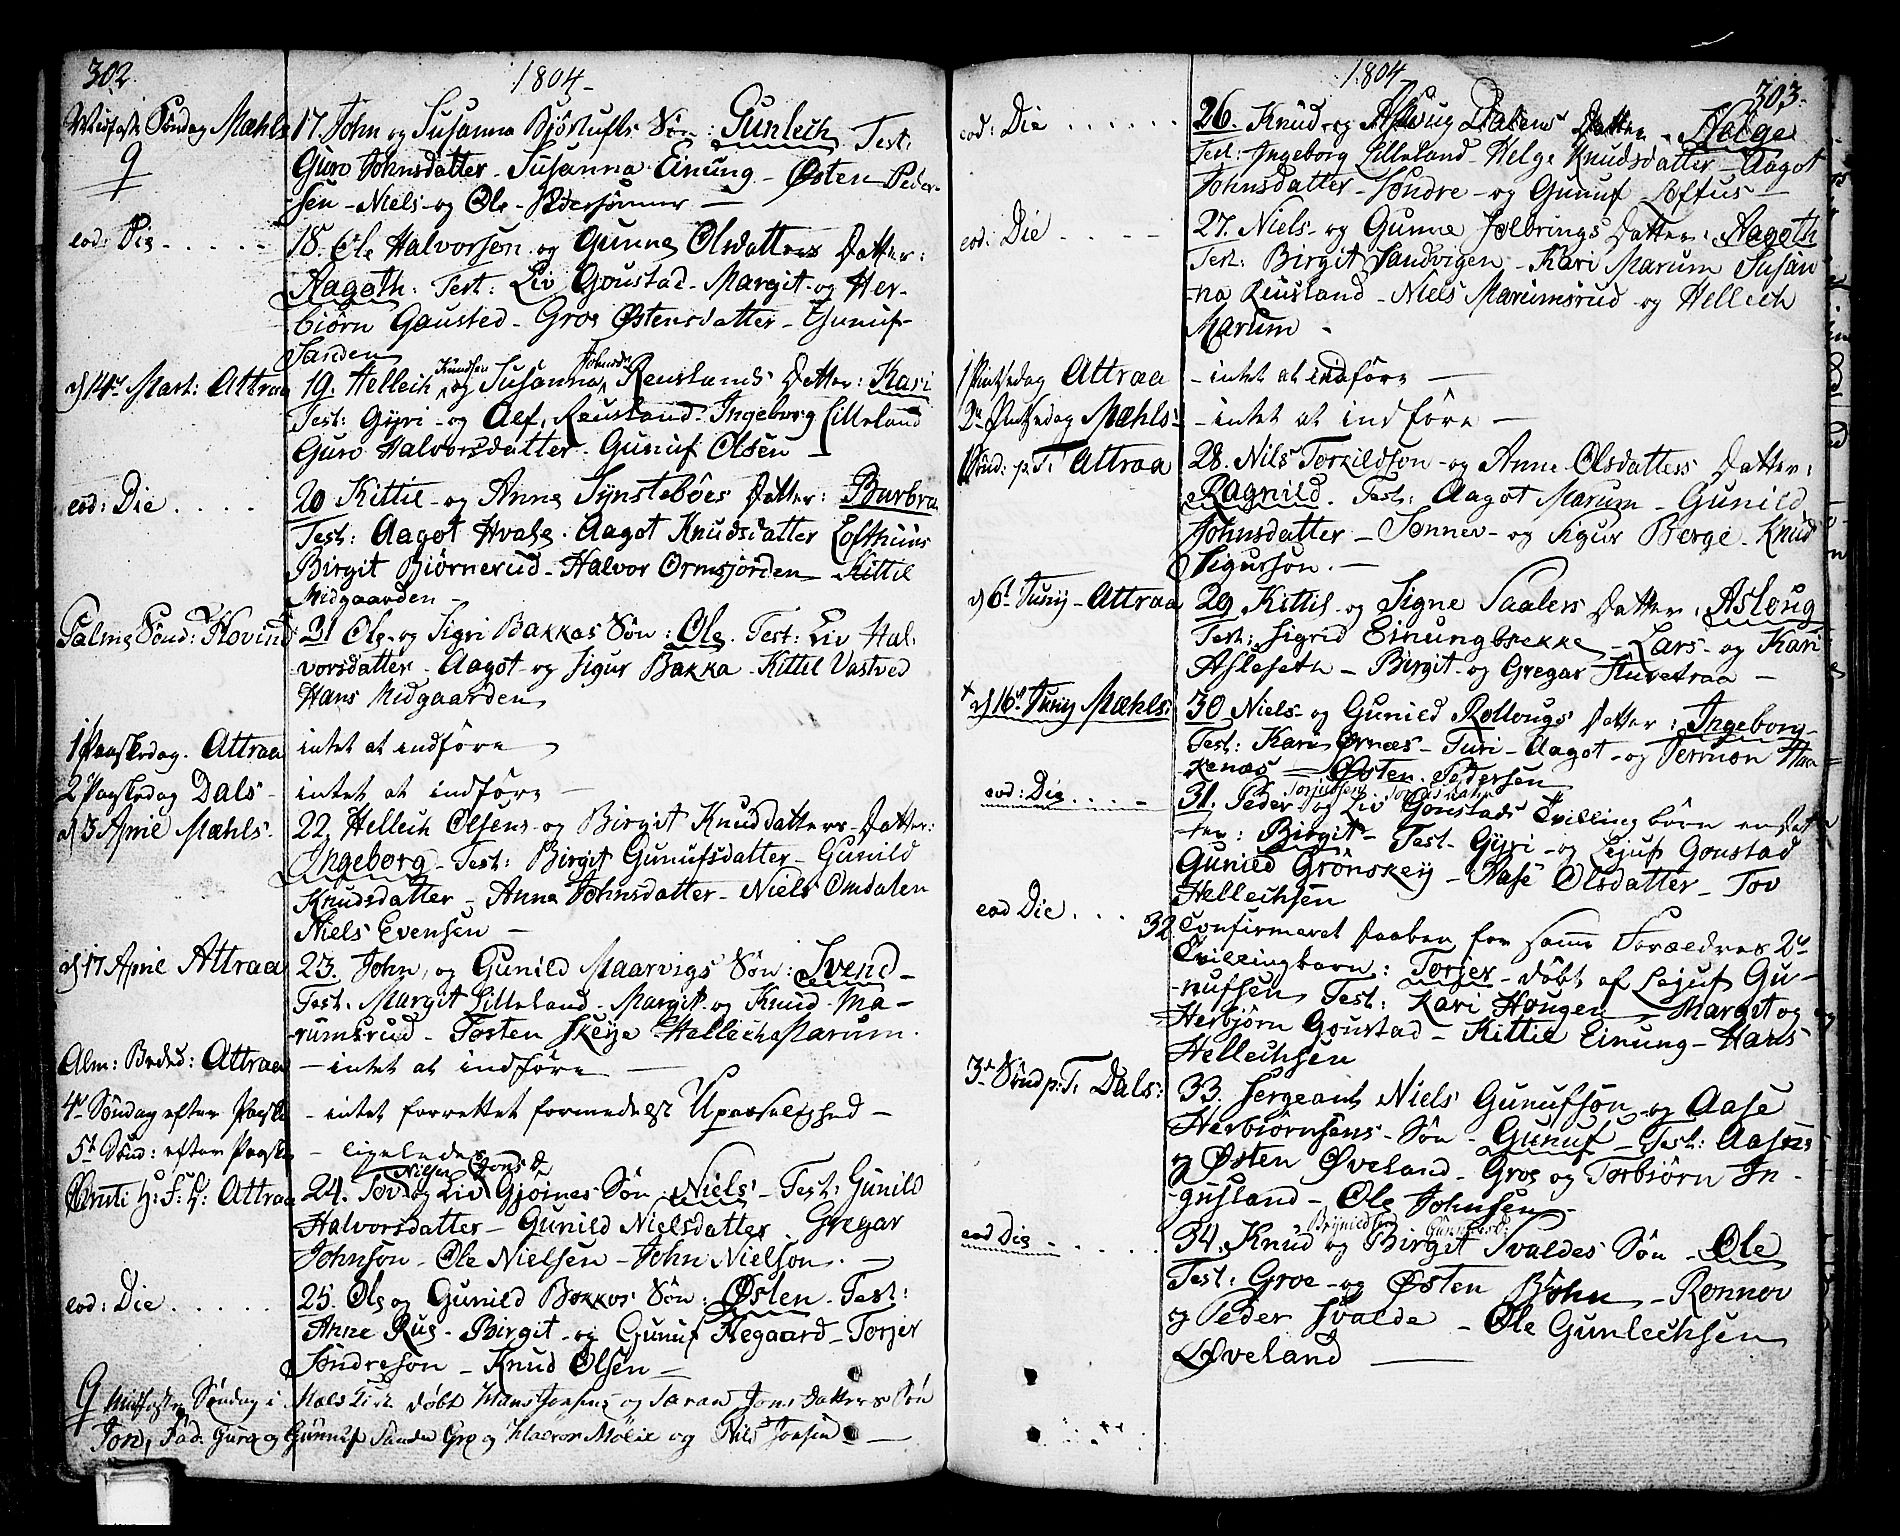 302.
1804
Midfaste Söndag Mæhls 17. John og Susanna Björtufts Sön: Gunlech. Test:
9 Guro Johnsdatter - Susanna Einung - Østen Peder-
sen - Niels - og Ole - Pedersönner -
eod: Die . . . . . 18. Ole Halvorsen og Gunne Olsdatters Datter:
Aagoth. Test: Liv Goustad - Margit - og Her-
biörn Gausted - Groe Østensdatter - Gunuf
Sanden
d 14de Mart: Attraa 19. Hellech Knudsen og Susanna Johnsdr Reuslands Datter: Kari
Test: Gyri - og Alf, Reusland - Ingeborg Lilleland
Guro Halvorsdatter - Gunuf Olsen -
eod: Die . . . . 20 Kittil - og Anne Synstebões Datter: Barbra
Test: Aagot Hvale - Aagot Knudsdatter Lofthuus
Birgit Biörnerud - Halvor Ormsjorden - Kittil
Midgaarden -
Palme Sönd: Hovind 21 Ole - og Sigri Bakkas Sön: Ole. Test: Liv Hal-
vorsdatter - Aagot - og Sigur Bakka - Kittil Vastved
Hans Midgaarden
1 Paaskedag. Attraa intet at indföre
2 Paaskedag Dals - intet at indföre -
d 3 April Mæhls. 22. Hellech Olsens - og Birgit Knudsdatters - Datter:
Ingeborg - Test: Birgit Gunufsdatter - Gunild
Knudsdatter - Anne Johnsdatter - Niels Omdalen
Niels Evensen -
d 17 April Attraa 23. John, og Gunild Maarvigs Sön: Svend -
Test: Margit Lilleland - Margit - og Knud Ma-
rumsrud - Tosten Skeye - Hellech Marum.
Alm: Beded: Attraa - intet at indföre -
4de Söndag efter Paaske - intet forrettet formedelst Upasselighed -
5te Sönd: efter Paaske - ligeledes
Christi H: F: D: Attraa 24. Tov Nielsen og Liv Jonsd Gjoines Sön: Niels - Test: Gunild
Halvorsdatter - Gunild Nielsdatter Gregar
Johnson - Ole Nielsen - John Nielson. -
eod: Die . . . . . 25. Ole og Gunild Bakkos Sön: Østen - Test:
Anne Rue - Birgit - og Gunuf Hegaard - Torjer
Söndreson - Knud Olsen -
9 Midfaste Söndag i Mæls Kirk döbt Hans Jonsens og Saran Jons Datters Sön
Jon, Fad. Guro og Gunnuf Sanden Gro og Halvor Mölie og Nils Jonsen -
1804
303.
eod: Die . . . . . . 26. Knud og Aslaug Dalens Datter - Helge
Test: Ingeborg Lilleland - Helge Knudsdatter - Aagot
Johnsdatter - Söndre - og Gunuf Loftus -
eod: Die . . . - 27. Niels - og Gunne Jolbrings Datter: Aagoth
Test: Birgit Sandvigen - Kari Marum Susan
na Reusland - Niels Marumsrud - og Hellech
Marum -
1 Pintsedag Attraa - intet at indföre -
2den Pintsedag Mæhls - - intet at indföre -
Sönd: p. T: Attraa 28. Nils Torkildson - og Anne Olsdatters Datter:
Ragnild. Test: Aagot Marum - Gunild
Johnsdatter - Sonnev - og Sigur Berge - Knud
Sigurson. -
d 6te Junij - Attraa 29. Kittil - og Signe Saalers Datter: Asloug
Test: Sigrid Einungbrekke - Lars - og Kari
Asleseth - Birgit - og Gregar Huvetraa -
+ d 16de Junij Mæhls: 30 Niels - og Gunild Rollougs Datter: Ingeborg -
Test: Kari Ørnæs - Turi - Aagot - og Sermon Haa
kenæs - Østen Pedersen
eod: Die. . . . - 31. Peder Torjersen og Liv Goustads Tvillingbörn en Dat
ter: Birgit - Test. Gyri - og Lejuf Goustad
Gunild Grönskey - Aase Olsdatter - Tov
Hellechsen
eod Die . . . 32. Confirmeret Daaben for samme Forældres 2de
Tvillingbarn: Torjer - döbt af Lejuf Gu-
nufsen Test: Kari Hougen - Margit og
Herbjörn Goustad - Kittil Einung - Hans
Hellechsen
3de Sönd p: T: Dals: 33. Sergeant Niels Gunufson og Aase
Herbiörnsens - Sön - Gunuf - Test: Aasne
og Østen Øveland - Groe og Torbiörn In-
gusland - Ole Johnsen -
eod Die - . . . . 34. Knud Brynildsen og Birgit Gunufsd: Svaldes Sön - Ole
Test: Groe - og Østen Böhn - Ronnov
og Peder Svalde - Ole Gunlechsen
Øveland -